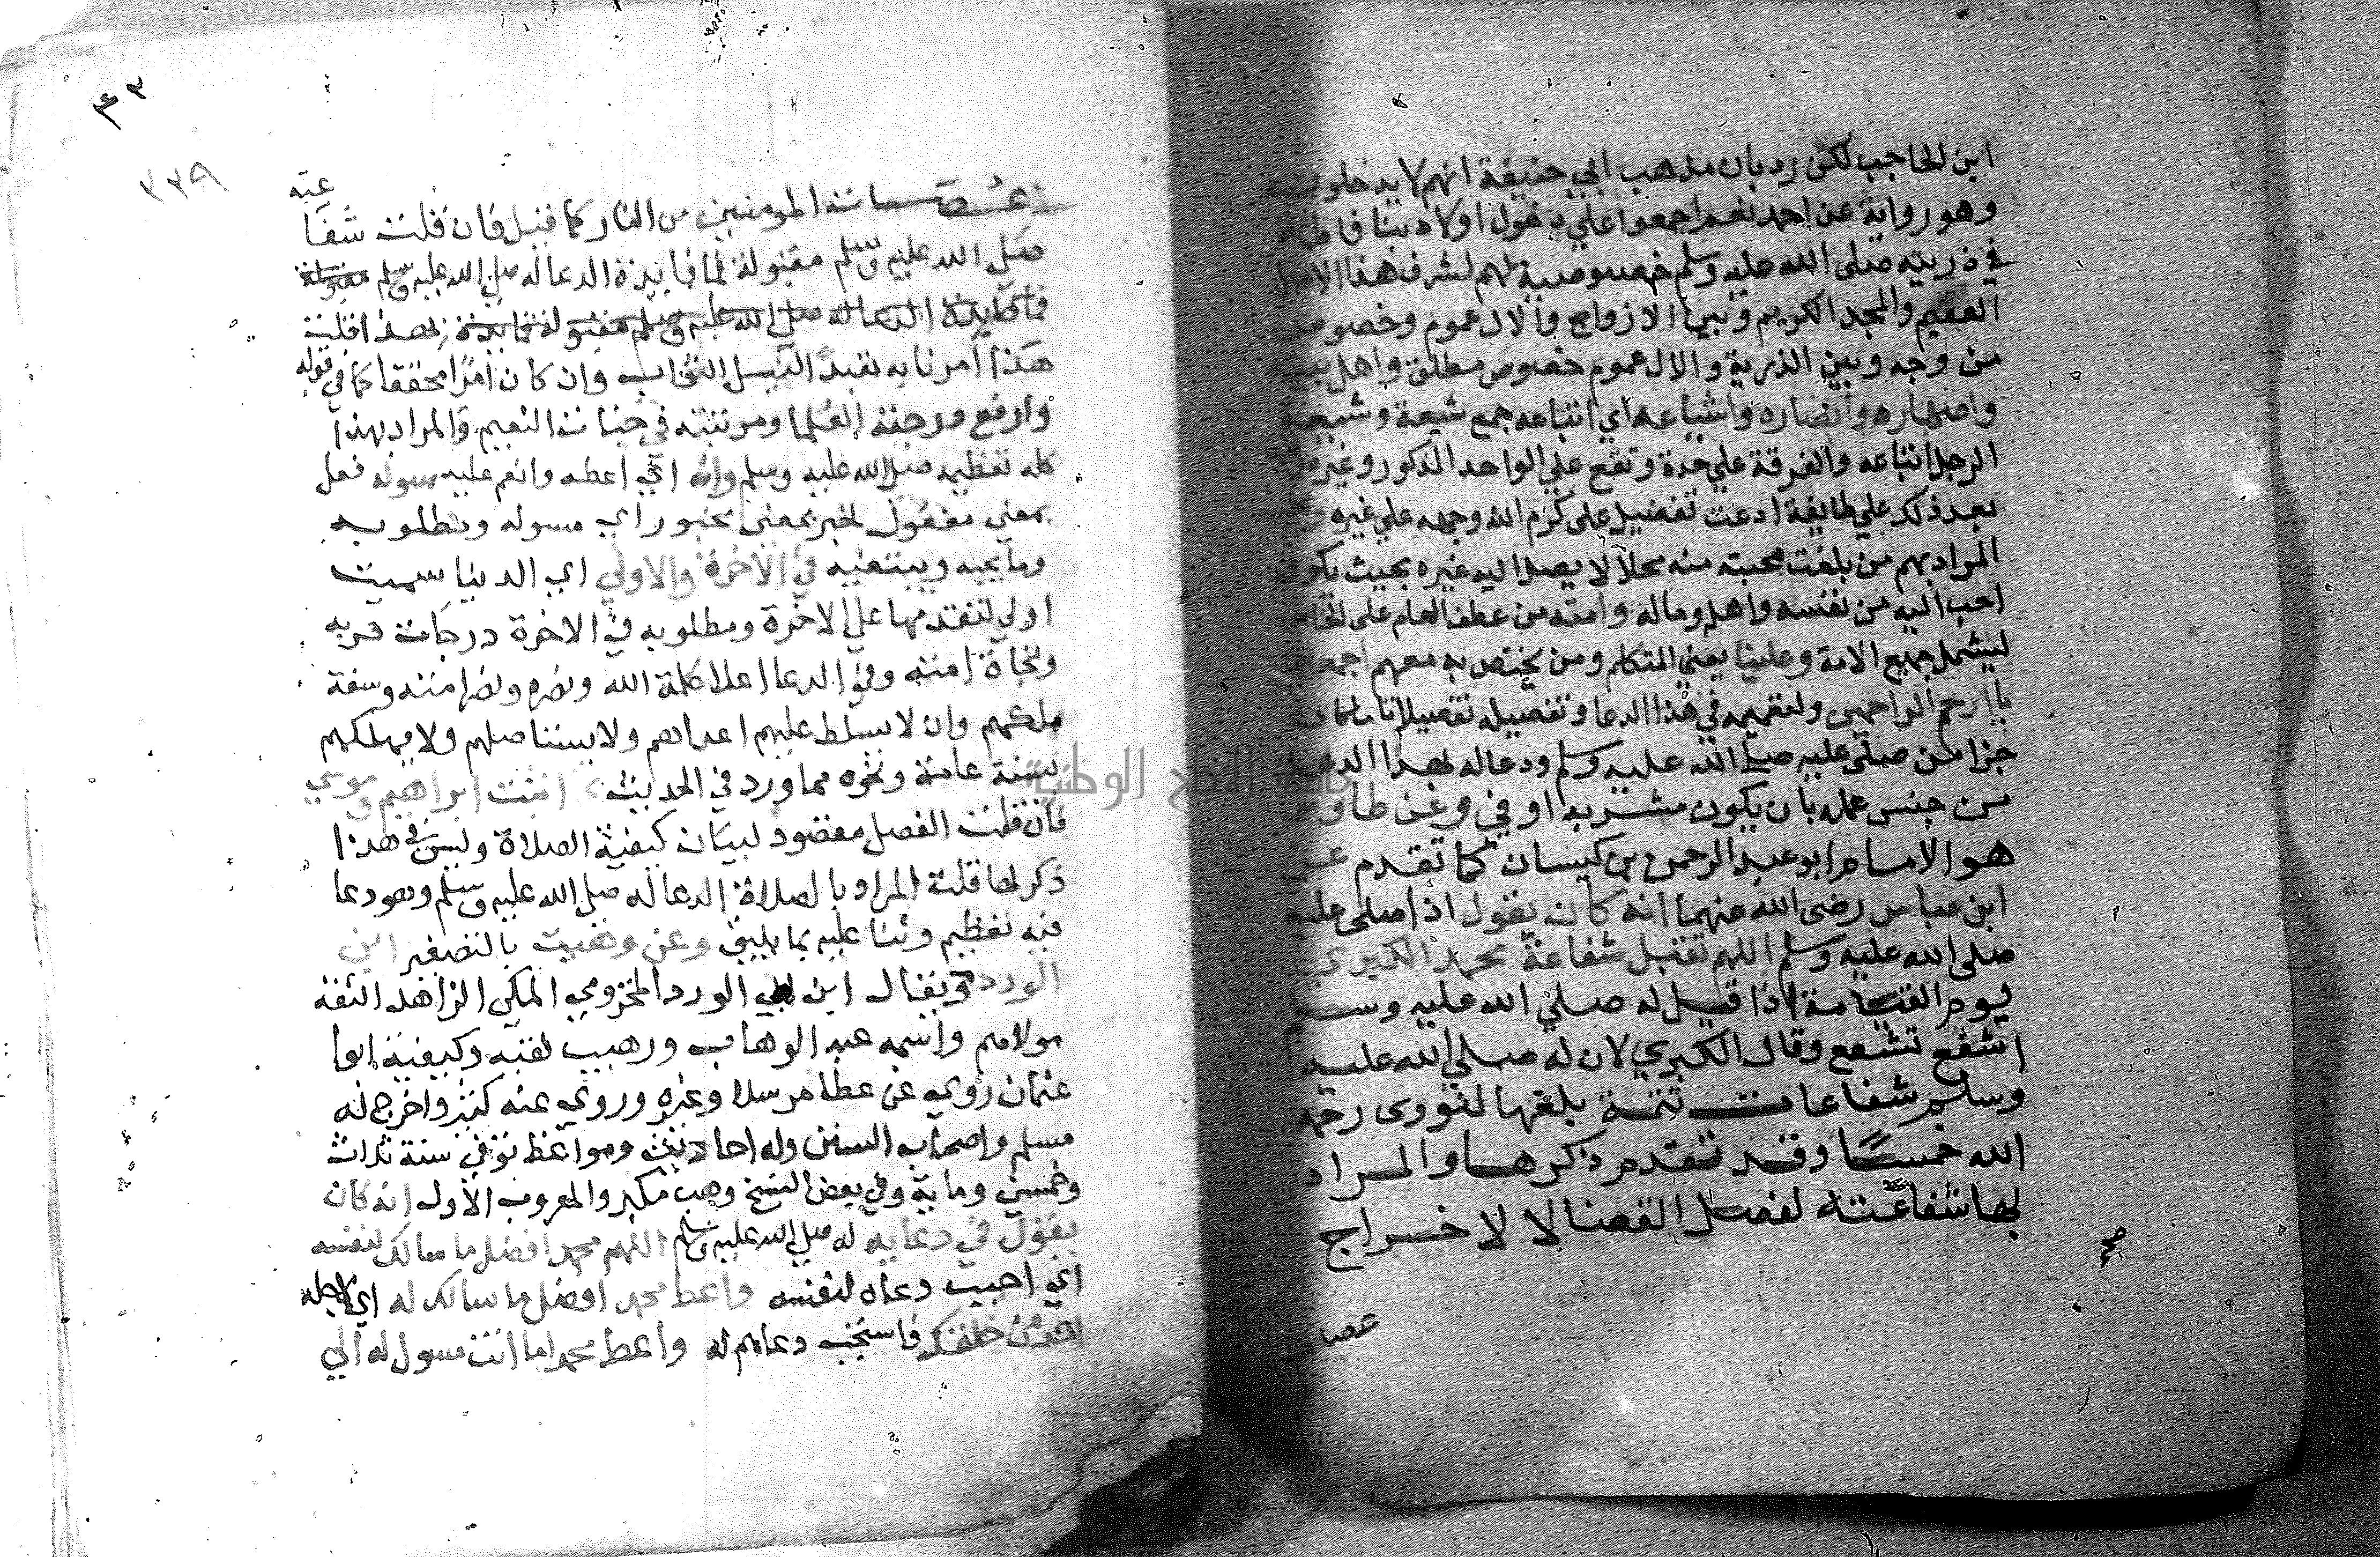 ابن الحاجب لكن رد بان مذهب ابي حنيفة انهم لا يدخلون
وهو رواية عن احمد نعم اجمعوا علي دخول اولاد بنا فاطمة
في ذريته صلى الله عليه وسلم خصوصية لهم لشرف هذا الاصل
العقيم والمجد الكريم وبين الازواج والال عموم وخصوص
من وجه وبين الذرية والال عموم خصوص مطلق واهل بيته
واصهاره وانصاره واشياعه اي اتباعه جمع شيعة وشيعة
الرجل اتباعه والفرقة علي حدة وتقع علي الواحد المذكور وغيره
بعد ذلك علي طايفة ادعت تفضيل على كرم الله وجهه علي غيره ومحبيه
المراد بهم من بلغت محبته منه محلا لا يصل اليه غيره بحيث يكون
احب اليه من نفسه واهله وماله وامته من عطف العام على الخاص
ليشمل جميع الامة وعلينا يعني المتكلم ومن يختص به معهم اجمعين
يا ارحم الراحمين ولتعميمه في هذا الدعا وتفصيله تفصيلا تاما كان
جزا من صلى عليه صلى الله عليه وسلم ودعا له بهذا الدعا
من جنس عمله بان يكون مشربه اوفي وعن طاوس
هو الامام ابو عبد الرحمن بن كيسان كما تقدم عن
ابن عباس رضى الله عنهما انه كان يقول اذا صلى عليه
صلى الله عليه وسلم اللهم تقبل شفاعة محمد الكبري
يوم القيامة اذا قيل له صلى الله عليه وسلم
اشفع تشفع وقال الكبري لان له صلى الله عليه
وسلم شفاعات تتمة بلغها لنووى رحمه
الله خمسا وقد تقدم ذكرها والمراد
بها شفاعته لفصل القضا لا لاخراج
عصا
٤٣
٣٣٩
عصات المومنين من النار كما قيل فان قلت شفاعته
صلى الله عليه وسلم مقبولة فما فايدة الدعا له صلى الله عليه وسلم مقبولة
فما فايدة الدعا له صلى الله عليه وسلم مقبولة فما بهذا قلت
هذا امرنا به تعبدا لنيل الثواب وان كان امرا محققا كما في قوله
وارفع درجته العليا ومرتبته في جنات النعيم والمراد بهذا
كله تعظيمه صلى الله عليه وسلم واته اي اعطه وانعم عليه سوله فعل
بمعني مفعول لخبر بمعنى مخبور اي مسوله ومطلوبه
وما يحبه ويبتغيه في الاخرة والاولي اي الدنيا سميت
اولي لتقدمها علي الاخرة ومطلوبه في الاخرة درجات قربه
ونجاة امته وفي الدعا اعلا كلمة الله ونصره ونصر امته وسعة
ملكهم وان لا يسلط عليهم اعداهم ولا يستاصلهم ولا يهلكهم
بسنة عامة ونحوه مما ورد في الحديث كما اتيت ابراهيم وموسي
فان قلت الفصل مقصود لبيان كيفية الصلاة وليس في هذا
ذكر لها قلت المراد بالصلاة الدعا له صلى الله عليه وسلم وهو دعا
فيه تعظيم وثنا عليه بما يليق وعن وهيب بالتصغير ابن
الورد ويقال ابن ابي الورد المخزومي المكي الزاهد الثقة
مولاهم واسمه عبد الوهاب ووهيب لقبه وكنيته ابوا
عثمان روي عن عطا مرسلا وغيره وروي عنه كثير واخرج له
مسلم واصحاب السنن وله احاديث ومواعظ توفي سنة ثلاث
وخمسين وماية وفي بعض النسخ وهب مكبر والمعروف الاول انه كان
يقول في دعايه له صلى الله عليه وسلم اللهم محمد افضل ما سالك لنفسه
اي اجب دعاه لنفسه واعط محمد افضل ما سالك له اي لاجله
احد من خلقك فاستجب دعاهم له واعط محمدا ما انت مسول له الي
جامعة النجاح الوطنية